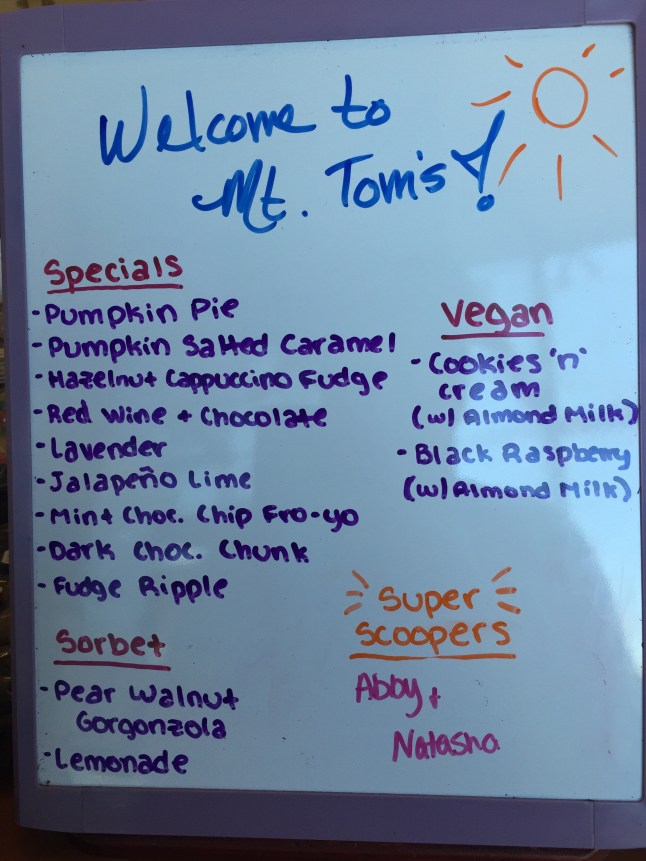 Welcome to
Mt. Tom's!
Specials
- Pumpkin Pie
- Pumpkin Salted Caramel
- Hazelnut Cappuccino Fudge
- Red Wine + Chocolate
- Lavender
- Jalapeño Lime
- Mint Choc. Chip Fro-yo
- Dark Choc. Chunk
- Fudge Ripple
Sorbet
- Pear Walnut
Gorgonzola
- Lemonade
Vegan
- Cookies 'n'
cream
(w/ Almond Milk)
- Black Raspberry
(w/ Almond Milk)
Super
Scoopers
Abby +
Natasha